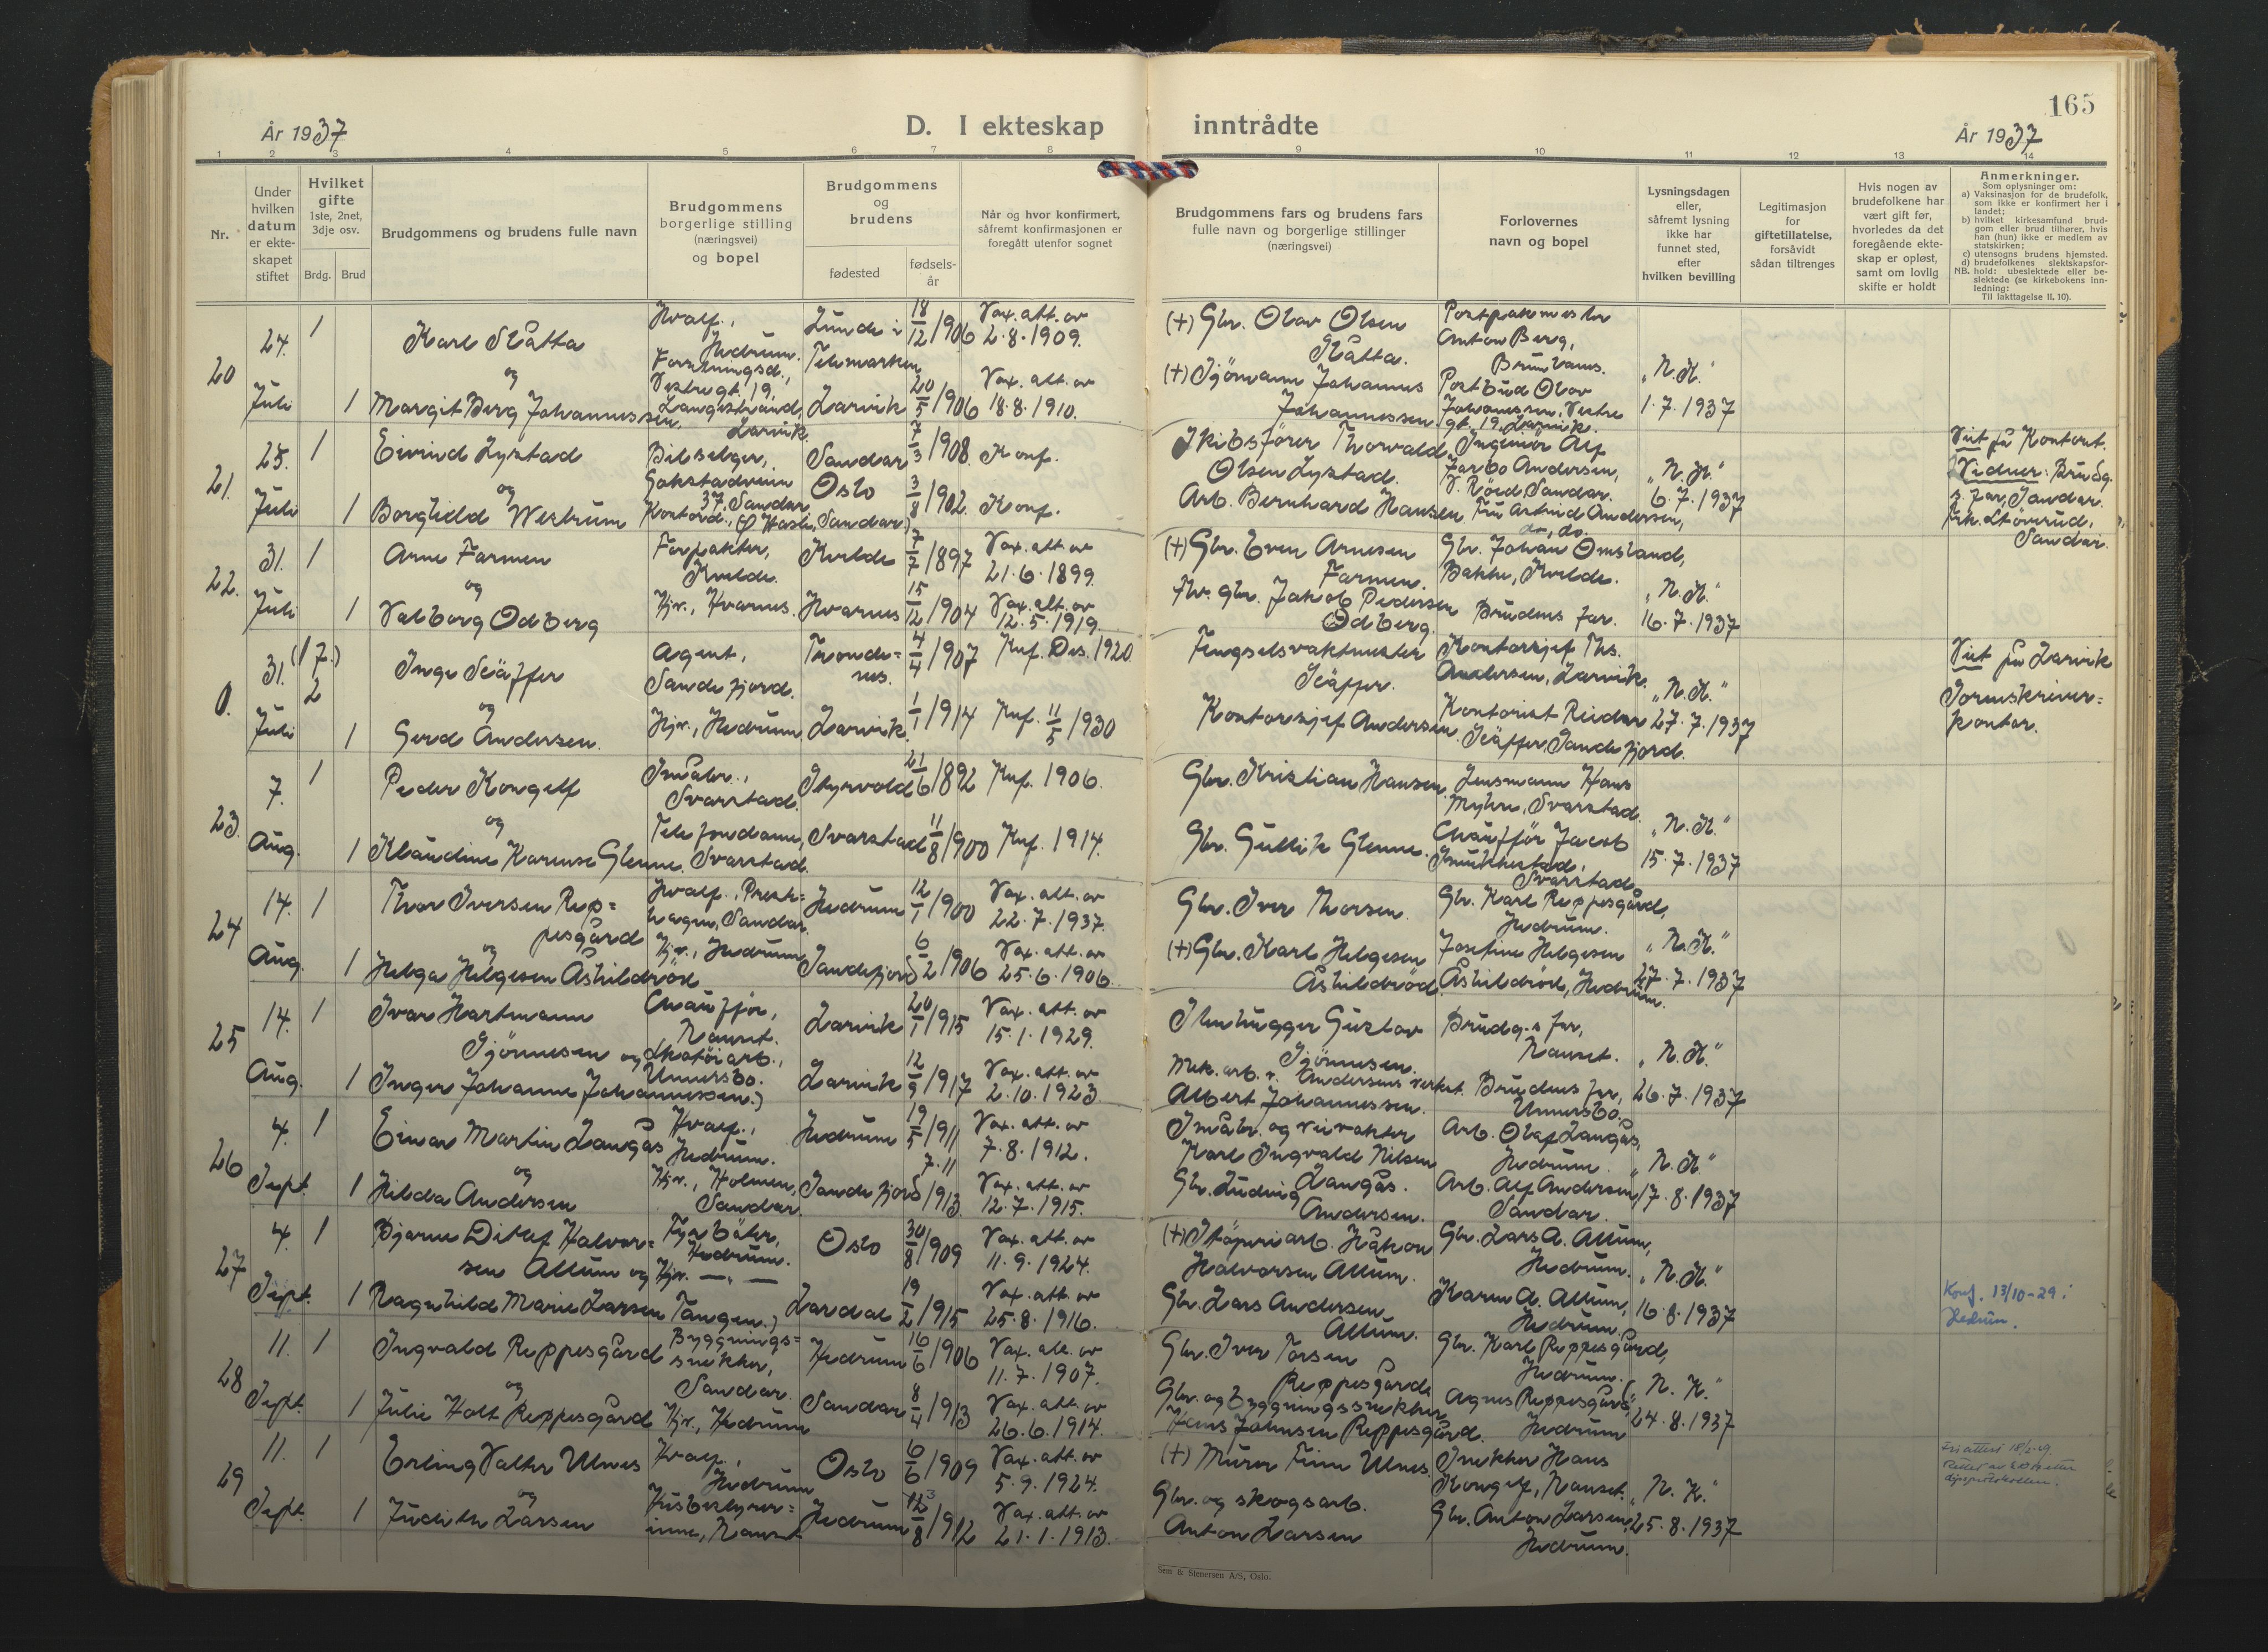 165
År 1937
D. I ekteskap inntrådte
År 1937
1 2 3 4 5 6 7 8 9 10 11 12 13 14
Nr.
Under hvilken datum er ekte-skapet stiftet
Hvilket gifte 1ste, 2net, 3dje osv.
Brdg. Brud
Brudgommens og brudens fulle navn
Brudgommens borgerlige stilling (næringsvei) og bopel
Brudgommens og brudens
fødested
fødsels-år
Når og hvor konfirmert, såfremt konfirmasjonen er foregått utenfor sognet
Brudgommens fars og brudens fars fulle navn og borgerlige stillinger (næringsvei)
Forlovernes navn og bopel
Lysningsdagen eller, såfremt lysning ikke har funnet sted, efter hvilken bevilling
Legitimasjon for giftetillatelse, forsåvidt sådan tiltrenges
Hvis nogen av brudefolkene har vært gift før, hvorledes da det foregående ekte-skap er opløst, samt om lovlig skifte er holdt
Anmerkninger.
Som oplysninger om:
a) Vaksinasjon for de brudefolk, som ikke er konfirmert her i landet;
b) hvilket kirkesamfund brud-gom eller brud tilhører, hvis han (hun) ikke er medlem av statskirken;
c) utensogns brudens hjemsted.
d) brudefolkenes slektskapsfor-hold: ubeslektede eller be-slektede (se kirkebokens inn-ledning:
NB. Til iakttagelse II. 10).
20 24. Juli 1 Karl Skåtta Hvalf., Hedrum. Lunde i Telemarken 18/12 1906 Vax. att. av 2.8.1909. (+) Gbr. Olav Olsen Skåtta. Anton Berg, Brunlanes.
og
1 Margit Berg Johannessen Langestrand, Larvik. Larvik 20/5 1906 Vax. att. av 18.8.1910. (+) Sjömann Johannes Johannessen Postbud Olav Johannessen, Vestre gt. 19, Larvik. "N.K." 1.7.1937
21. 25. Juli 1 Eivind Lystad Bilselger, Gokstadveien 37, Sandar Sandar 7/3 1908. Konf. Skibsfører Thorvald Olsen Lystad. Ingeniör Alf Jarbo Andersen, V. Röed, Sandar.
og
1 Borghild Westrum Kontord., Sandar) Oslo 3/8 1902. Konf. Arb. Bernhard Hansen Fru Astrid Andersen, do, do. "N.K." 6.7.1937
Viet på Kontoret. Vidner: Brudg. s. far, Sandar. Sandar.
22. 31. Juli 1 Arne Farmen Forpakter, Kvelde. Kvelde 7/7 1897 Vax. att. av 21.6.1899. (+) Gbr. Even Arnesen Farmen. Gbr. Johan Omsland, Bakke, Kvelde.
og
1 Valborg Odberg Hjv., Hvarnes. Hvarnes 15/12 1904 Vax. att. av 12.5.1919. Fhv. gbr. Jakob Pedersen Odberg. Brudens far. "N.K." 16.7.1937
0. 31. Juli (1?) 2 Inge Schäffer Agent, Sandefjord. 4/4 1907 Knf. Des. 1920. Fengselsvaktmester Schäffer. Kontorsjef Ths. Andersen, Larvik.
og
1 Gerd Andersen. Hjv., Hedrum Larvik. 1/1 1914 Knf. 11/5 1930 Kontorsjef Andersen Kontorist Reidar Schäffer, Sandefjord. "N.K." 27.7.1937
Viet på Larvik Sorenskriver=kontor.
23. 7. Aug. 1 Peder Kongelf Småbr., Svarstad. Styrvold 21/6 1892 Knf. 1906. Gbr. Kristian Hansen. Lensmann Hans Myhre, Svarstad.
og
1 Klaudine Karense Glenne. Telefondame, Svarstad. Svarstad 11/8 1900 Knf. 1914. Gbr. Gullik Glenne. Chauffør Jacob Svarstad. "N.K." 15.7.1937
24 14. Aug. 1 Thor Iversen Rep=pesgård Hvalf., Prest=hagen, Sandar. Hedrum 12/1 1900 Vax. att. av 22.7.1937. Gbr. Iver Thorsen. Gbr. Karl Reppesgård, Hedrum.
og
1 Helga Helgesen Åshildrød Hjv., Hedrum Sandefjord 6/2 1906 Vax. att. av 25.6.1906. (+) Gbr. Karl Helgesen Åshildrød. Josefine Helgesen Åshildrød, Hedrum. "N.K." 27.7.1937
25 14. Aug. 1 Ivar Hartmann Gjönnesen og Chauffør, Nanset. Larvik 20/1 1915 Vax. att. av 15.1.1929. Stenhugger Gustav Gjönnesen. Brudg.s far, Nanset.
1 Inger Johanne Johannessen.) Skotøiarb., Unnersbo. Larvik 12/9 1917 Vax. att. av 2.10.1923 Mek. arb. v. Andersens verkst. Albert Johannessen. Brudens far, Unnersbo. "N.K." 26.7.1937
26 4. Sept. 1 Einar Martin Langås Hvalf., Hedrum. Hedrum 19/5 1911 Vax. att. av 7.8.1912. Småbr. og veivakter Karl Ingvald Nilsen Langås. Arb. Olaf Langås, Hedrum.
og
1 Hilda Andersen Hjv., Holmen, Sandar. Sandefjord 7.11 1913. Vax. att. av 12.7.1915. Gbr. Ludvig Andersen. Arb. Alf Andersen Sandar. "N.K." 17.8.1937
27 4. Sept. 1 Bjarne Ditlef Halvor=sen Allum og Fyrbøter, Hedrum. Oslo 30/8 1909 Vax. att. av 11.9.1924. (+) Støperiarb. Håkon Halvorsen Allum. Gbr. Lars A. Allum, Hedrum.
1 Ragnhild Marie Larsen Hjv. —„— Tangen.) Lardal 19/2 1915 Vax. att. av 25.8.1916. Gbr. Lars Andersen Allum. Karen A. Allum, Hedrum. "N.K." 16.8.1937
Konf. 13/10-29 i Hedrum.
28 11. Sept. 1 Ingvald Reppesgård Byggnings=snekker, Sandar. Hedrum 16/6 1906 Vax. att. av 11.7.1907. Gbr. Iver Torsen Reppesgård. Gbr. Karl Reppesgård, Hedrum.
og
1 Julie Holt Reppesgård Hjv., Hedrum Sandar 8/4 1913 Vax. att. av 26.6.1914. Gbr. og byggningssnekker Hans Johnsen Reppesgård. Agnes Reppesgård, Hedrum "N.K." 24.8.1937
29 11. Sept. 1 Erling Valter Ulnes Hvalf., Hedrum Oslo 6/6 1909 Vax. att. av 5.9.1924. (+) Murer Finn Ulnes. Snekker Hans Kongelf, Nanset.
og
1 Judith Larsen Husbestyrer=inne, Nanset Hedrum 1912 Vax. att. av 21.1.1913. Gbr. og skogsarb. Anton Larsen Gbr. Anton Larsen, Hedrum. "N.K." 25.8.1937
Sem & Stenersen A/S, Oslo.